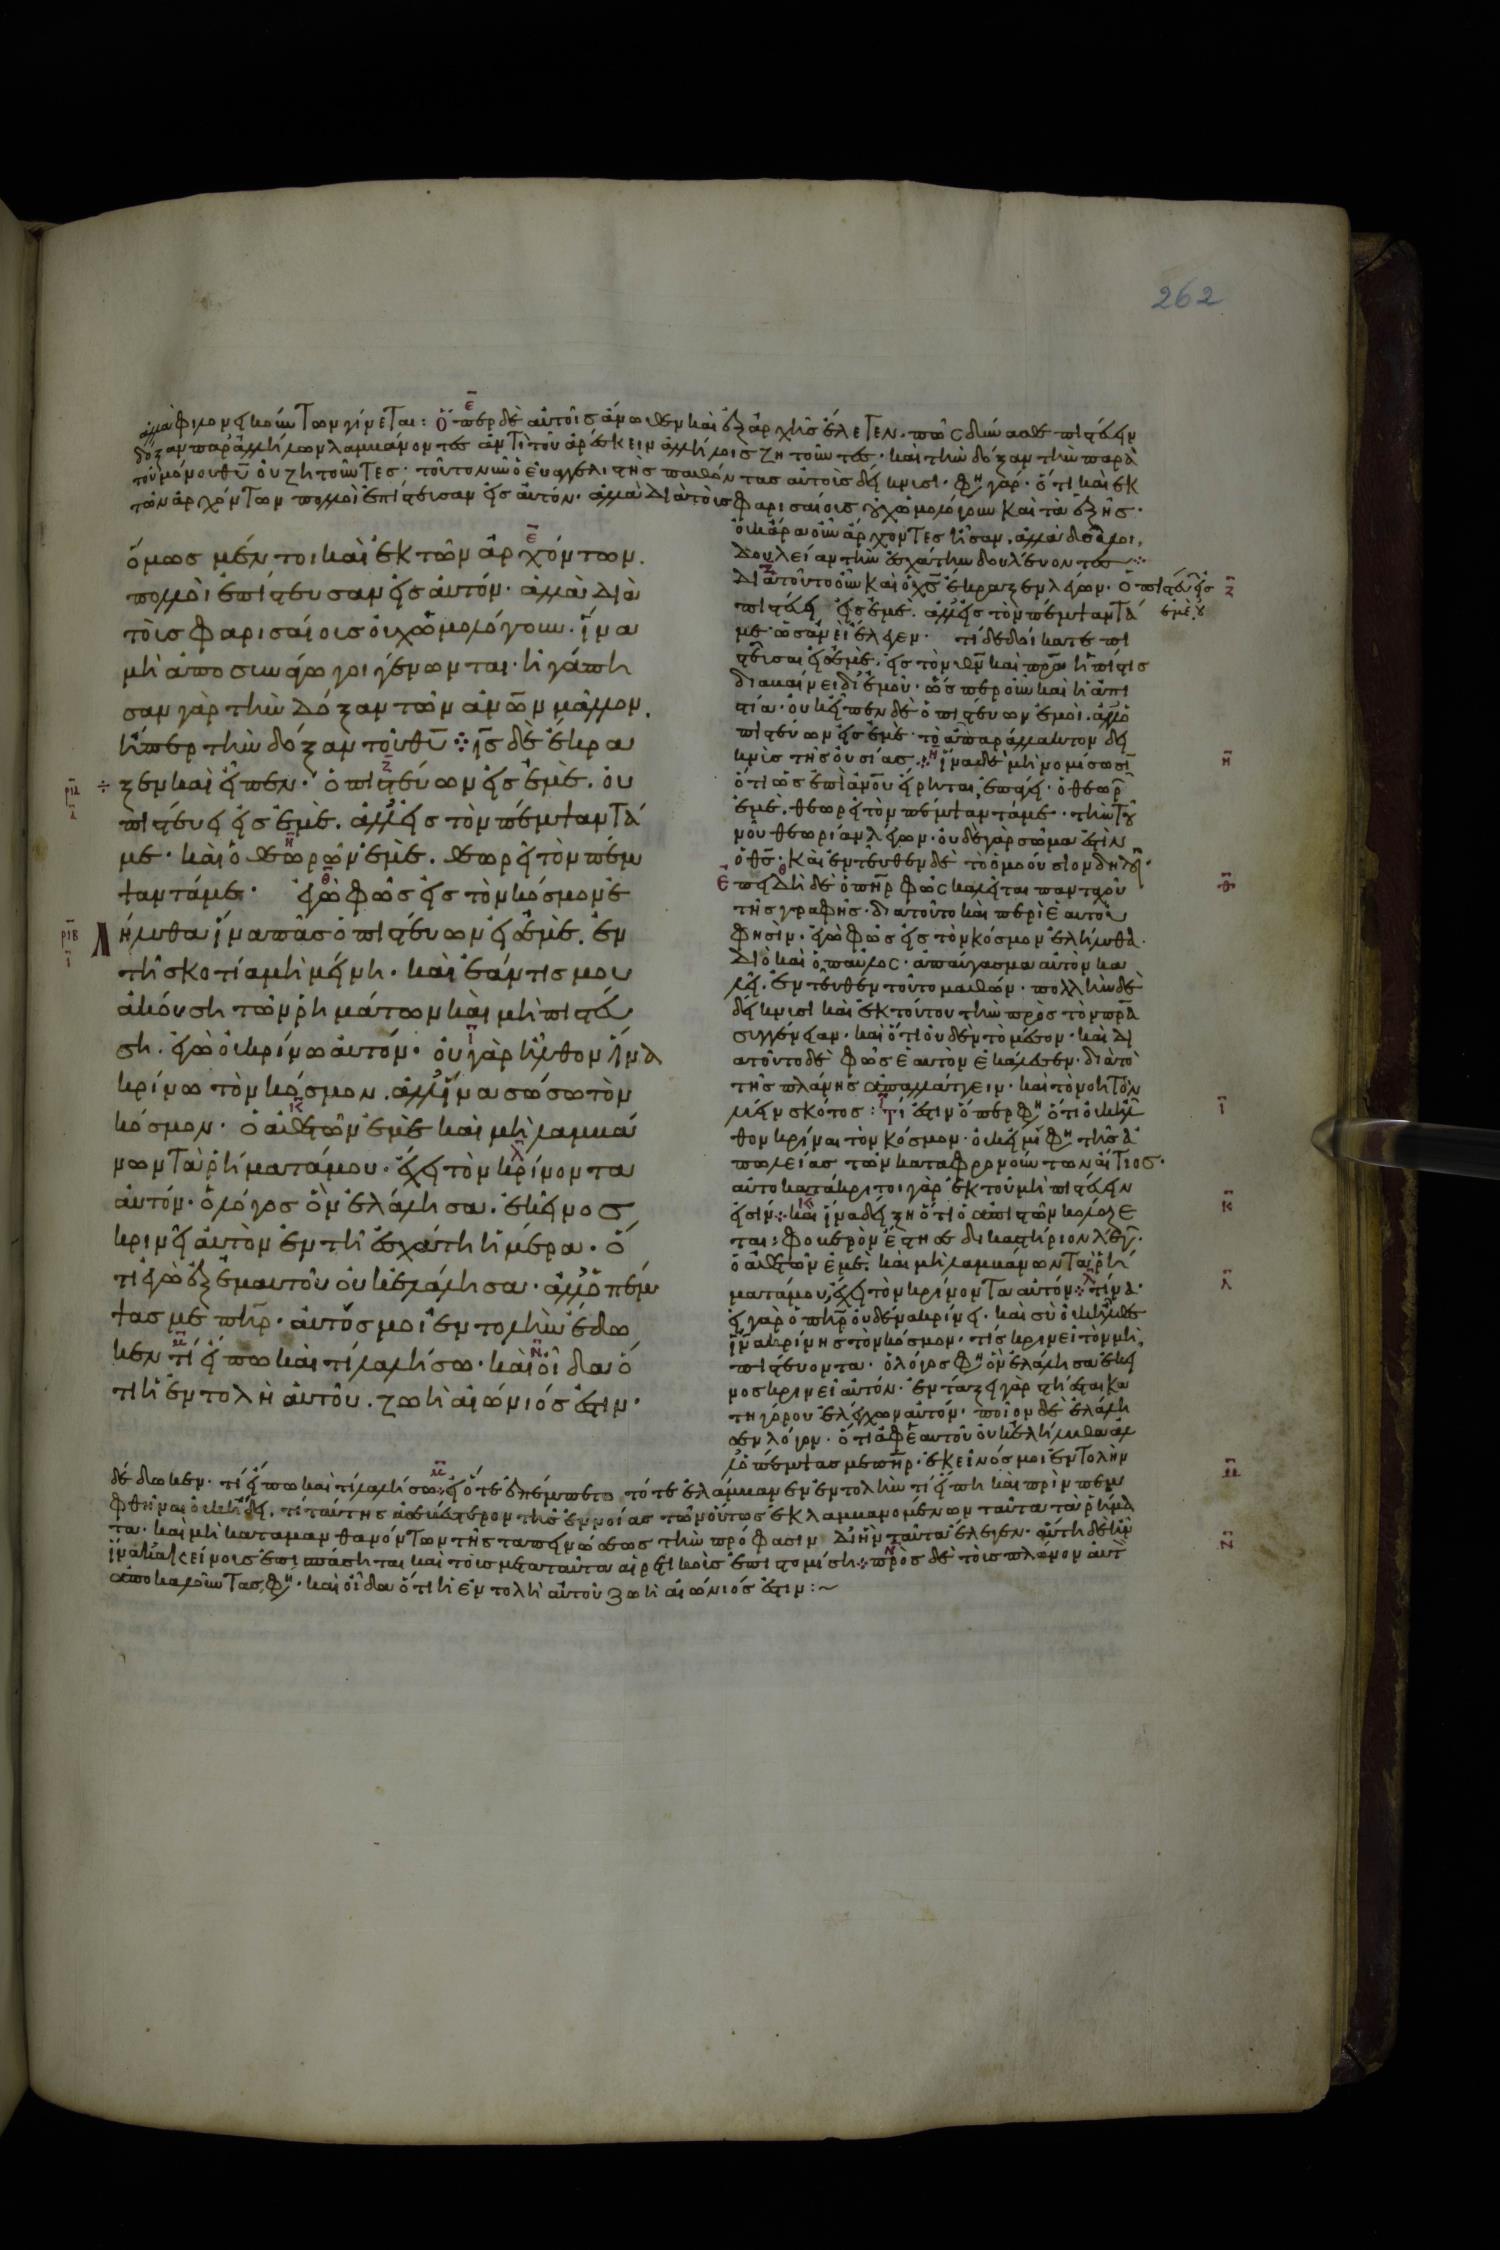 262
ἀλλὰ φιλονεικούντων γίνεται: Ὅπερ δὲ αὐτοῖς ἄνωθεν καὶ ἐξ ἀρχῆς ἔλεγεν. πῶς δύνασθε πιστεύειν
δόξαν παρ' ἀλλήλων λαμβάνοντες ἀντὶ τοῦ ἀρέσκειν ἀλλήλοις ζητοῦντες. καὶ τὴν δόξαν τὴν παρὰ
τοῦ μόνου θυ οὐ ζητοῦντες. τοῦτο νῦν ὁ εὐαγγελιστὴς παθόντας αὐτοὺς δείκνυσι. φη γάρ. ὅτι καὶ ἐκ
τῶν ἀρχόντων πολλοὶ ἐπίστευσαν εἰς αὐτόν. ἀλλὰ διὰ τοὺς φαρισαίους οὐχ ὡμολόγουν καὶ τὰ ἑξῆς.
ὅμως μέν τοι καὶ ἐκ τῶν ἀρχόντων.
πολλοὶ ἐπίστευσαν εἰς αὐτόν. ἀλλὰ διὰ
τοὺς φαρισαίους οὐχ ὡμολόγουν. ἵνα
μὴ ἀποσυνάγωγοι γένωνται. ἠγάπη
σαν γὰρ τὴν δόξαν τῶν ἀνων μᾶλλον.
ἤπερ τὴν δόξαν τοῦ θυ ⁘ ις δὲ ἔκρα
ρια ξεν καὶ εἶπεν. ὁ πιστεύων εἰς ἐμὲ. οὐ
πιστεύει εἰς ἐμὲ. ἀλλ' εἰς τὸν πέμψαντά
με. καὶ ὁ θεωρῶν ἐμὲ. θεωρεῖ τὸν πέμ
ψαντά με. ἐγὼ φῶς εἰς τὸν κόσμον ἐ
ριβ λήλυθα ἵνα πᾶς ὁ πιστεύων εἰς ἐμὲ. ἐν
τῇ σκοτίᾳ μὴ μείνῃ. καὶ ἐάν τις μου
ἀκούσῃ τῶν ῥημάτων καὶ μὴ πιστεύ
σῃ. ἐγὼ οὐ κρίνω αὐτόν. οὐ γὰρ ἦλθον ἵνα
κρίνω τὸν κόσμον. ἀλλ' ἵνα σώσω τὸν
κόσμον. ὁ ἀθετῶν ἐμὲ καὶ μὴ λαμβά
νων τὰ ῥήματά μου. ἔχει τὸν κρίνοντα
αὐτόν. ὁ λόγος ὃν ἐλάλησα. ἐκεῖνος
κρινεῖ αὐτὸν ἐν τῇ ἐσχάτῃ ἡμέρα. ὅ
τι ἐγὼ ἐξ ἐμαυτοῦ οὐκ ἐλάλησα. ἀλλ' ὁ πέμ
ψας με πηρ. αὐτός μοι ἐντολὴν ἔδω
κεν τί εἴπω καὶ τί λαλήσω. καὶ οἶδα ὅ
τι ἡ ἐντολὴ αὐτοῦ. ζωὴ αἰώνιός ἐστιν.
οὐκ ἄρα οὖν ἄρχοντες ἦσαν. ἀλλὰ δοῦλοι.
δουλείαν τὴν ἐσχάτην δουλεύοντες ⁘
Διὰ τοῦτο οὖν καὶ ὁ χς ἔκραξεν λέγων. ὁ πιστεύων εἰς
ἐμὲ. οὐ
πιστεύει εἰς ἐμὲ. ἀλλ' εἰς τὸν πέμψαντά
με. ὡσανεὶ ἔλεγεν. τί δεδοίκατε πι
στεῦσαι εἰς ἐμὲ. εἰς τὸν θν καὶ πρα ἡ πίστις
διαβαίνει δι' ἐμοῦ. ὥσπερ οὖν καὶ ἡ ἀπι
στία. οὐκ εἶπεν δὲ ὁ πιστεύων ἐμοί. ἀλλ' ὁ
πιστεύων εἰς ἐμὲ. τὸ ἀπαράλλακτον δει
κνὺς τῆς οὐσίας ⁘ ἵνα δὲ μὴ νομίσωσι
ὅτι ὡς ἐπὶ ἀνου εἴρηται, ἐπάγει. ὁ θεωρῶν
ἐμὲ. θεωρεῖ τὸν πέμψαντά με. τὴν τοῦ
νοῦ θεωρίαν λέγων. οὐδὲ γὰρ σῶμά ἐστιν
ὁ θς. καὶ ἐντεῦθεν δὲ τὸ ὁμοούσιον δηλοῖ.
Ἐπειδὴ δὲ ὁ πηρ φῶς καλεῖται πανταχοῦ
τῆς γραφῆς. διὰ τοῦτο καὶ περὶ ἑαυτοῦ
φησίν. ἐγὼ φῶς εἰς τὸν κόσμον ἐλήλυθα.
Διὸ καὶ ὁ παῦλος. ἀπαύγασμα αὐτὸν κα
λεῖ. ἐντεῦθεν τοῦτο μαθών. πολλὴν δὲ
δείκνυσι καὶ ἐκ τούτου τὴν πρὸς τὸν πρα
συγγένειαν. καὶ ὅτι οὐδὲν τὸ μέσον. καὶ δι
ὰ τοῦτο δὲ φῶς ἑαυτὸν ἐκάλεσεν. διὰ τὸ
τῆς πλάνης ἀπαλλάττειν. καὶ τὸ νοητὸν
λύειν σκότος: Τί ἐστιν ὅπερ φη ὅτι οὐκ ἦλ
θον κρῖναι τὸν κόσμον. οὐκ εἰμί φη τῆς ἀ
πωλείας τῶν καταφρονούντων αἴτιος.
αὐτοκατάκριτοι γὰρ ἐκ τοῦ μὴ πιστεύειν
εἰσίν ⁘ καὶ ἵνα δείξῃ ὅτι ὁ ἀπιστῶν κολάζε
ται: φοβερὸν ἔστησε δικαστήριον λέγων.
ὁ ἀθετῶν ἐμὲ. καὶ μὴ λαμβάνων τὰ ῥή
ματά μου, ἔχει τὸν κρίνοντα αὐτόν ⁘ τίνα.
εἰ γὰρ ὁ πηρ οὐδένα κρίνει. καὶ σὺ οὐκ ἦλθες
ἵνα κρίνῃς τὸν κόσμον. τίς κρινεῖ τὸν μὴ
πιστεύοντα. ὁ λόγος φη ὃν ἐλάλησα ἐκεῖ
νος κρινεῖ αὐτόν. ἐν τάξει γὰρ στήσεται κα
τηγόρου ἐλέγχων αὐτόν. ποῖον δὲ ἐλάλη
σεν λόγον. ὅτι ἀφ' ἑαυτοῦ οὐκ ἐλήλυθα ἀλ
λ' ὁ πέμψας με πηρ. ἐκεῖνός μοι ἐντολὴν
δέδωκεν. τί εἴπω καὶ τί λαλήσω ⁘ εἰ ὅτε ἐπέμπετο τότε ἐλάμβανεν ἐντολὴν τί εἴπῃ καὶ πρὶν πεμ
φθῆναι οὐκ ᾔδει. τί ταύτης ἀσεβέστερον τῆς ἐννοίας τῶν οὕτως ἐκλαμβανομένων ταῦτα τὰ ῥήμα
τα. καὶ μὴ καταμανθανόντων τῆς ταπεινώσεως τὴν πρόφασιν δι' ἣν ταῦτα ἔλεγεν. αὕτη δὲ ἦν
ἵνα κἀκείνους ἐπισπάσηται καὶ τοὺς μετὰ ταῦτα αἱρετικοὺς ἐπιστομίσῃ ⁘ πρὸς δὲ τοὺς πλάνον αὐτὸν
ἀποκαλοῦντας, φη. καὶ οἶδα ὅτι ἡ ἐντολὴ αὐτοῦ ζωὴ αἰώνιός ἐστιν :~